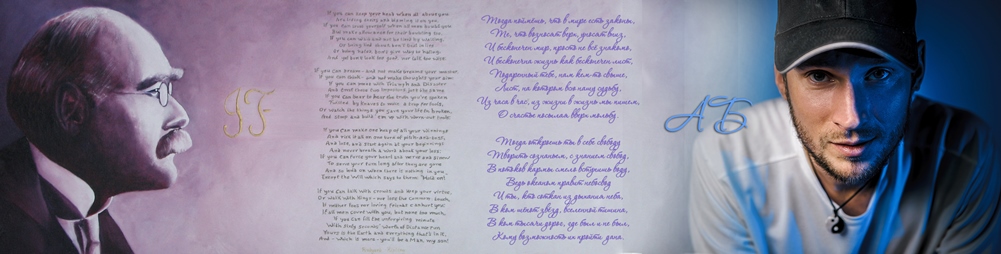 IF
If you can keep your head when all about you
Are losing theirs and blaming it on you
If you can trust yourself when all men doubt you
But make allowance for their doubting too.
If you can wait and not be tired by waiting,
Or being lied about don't deal in lies
Or being hated don't give way to hating
And yet don't look too good, nor talk too wise
If you can dream - and not make dreams your master
If you can think - and not make thoughts your aim
If you can meet with Triumph and Disaster
And treat those two imposters just the same
If you can bear to hear the truth you've spoken
Twisted by knaves to make a trap for fools,
Or watch the things you gave your life to, broken,
And stoop and build 'em up with worn-out tools
If you can make one heap of all your winnings
And risk it all on one turn of pitch-and-toss,
And lose, and start again at your beginnings
And never breathe a word about your loss:
If you can force your heart and nerve and sinew
To serve your turn long after they are gone
And so hold on when there is nothing in you,
Except the Will which says to them: "Hold on!"
If you can talk with crowds and keep your virtue,
Or walk with kings - nor lose the common touch,
If neither foes nor loving friends can hurt you
If all men count with you, but none too much,
If you can fill the unforgiving minute
With sixty seconds' worth of distance run
Yours is the Earth and everything that's in it,
And - which is more - you'll be a Man, my son!
Тогда поймёшь, что в мире есть законы,
Те, что возносят вверх, угасат вниз,
И бесконечен мир, просто не всё знакомо,
И бесконечна жизнь как бесконечен лист,
Подаренный тебе, нам кем-то свыше,
Лист, на котором всю нашу судьбу.
Из часа в час, из жизни в жизнь мы пишем,
О счастье посылая вверх мольбу.
Тогда откроешь ты в себе свободу
Творить сознаньем, с знанием свобод,
В потоках кармы смело встретишь воду,
Ведь океаном правит небосвод
И ты, кто соткан из дыханья неба,
В ком шепот звезд, вселенной тишина,
В ком тысячи дорог, где был и не был,
Кому возможность их пройти дана.
АБ